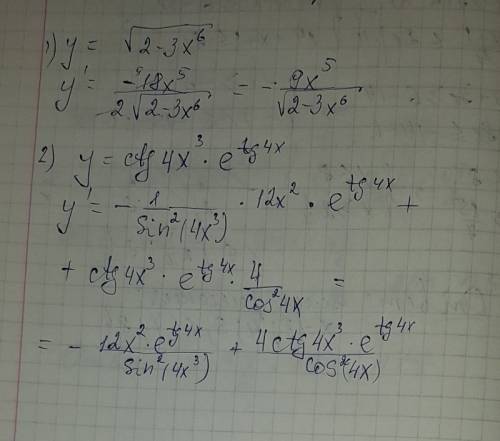 1) y = √(2-3x⁶)
y' = -18x⁵ / 2√(2-3x⁶) = - 9x⁵ / √(2-3x⁶)
2) y = ctg 4x³ · e^(tg 4x)
y' = - 1 / sin²(4x³) · 12x² · e^(tg 4x) +
+ ctg 4x³ · e^(tg 4x) · 4 / cos² 4x =
= - 12x² · e^(tg 4x) / sin²(4x³) + 4 ctg 4x³ · e^(tg 4x) / cos²(4x)